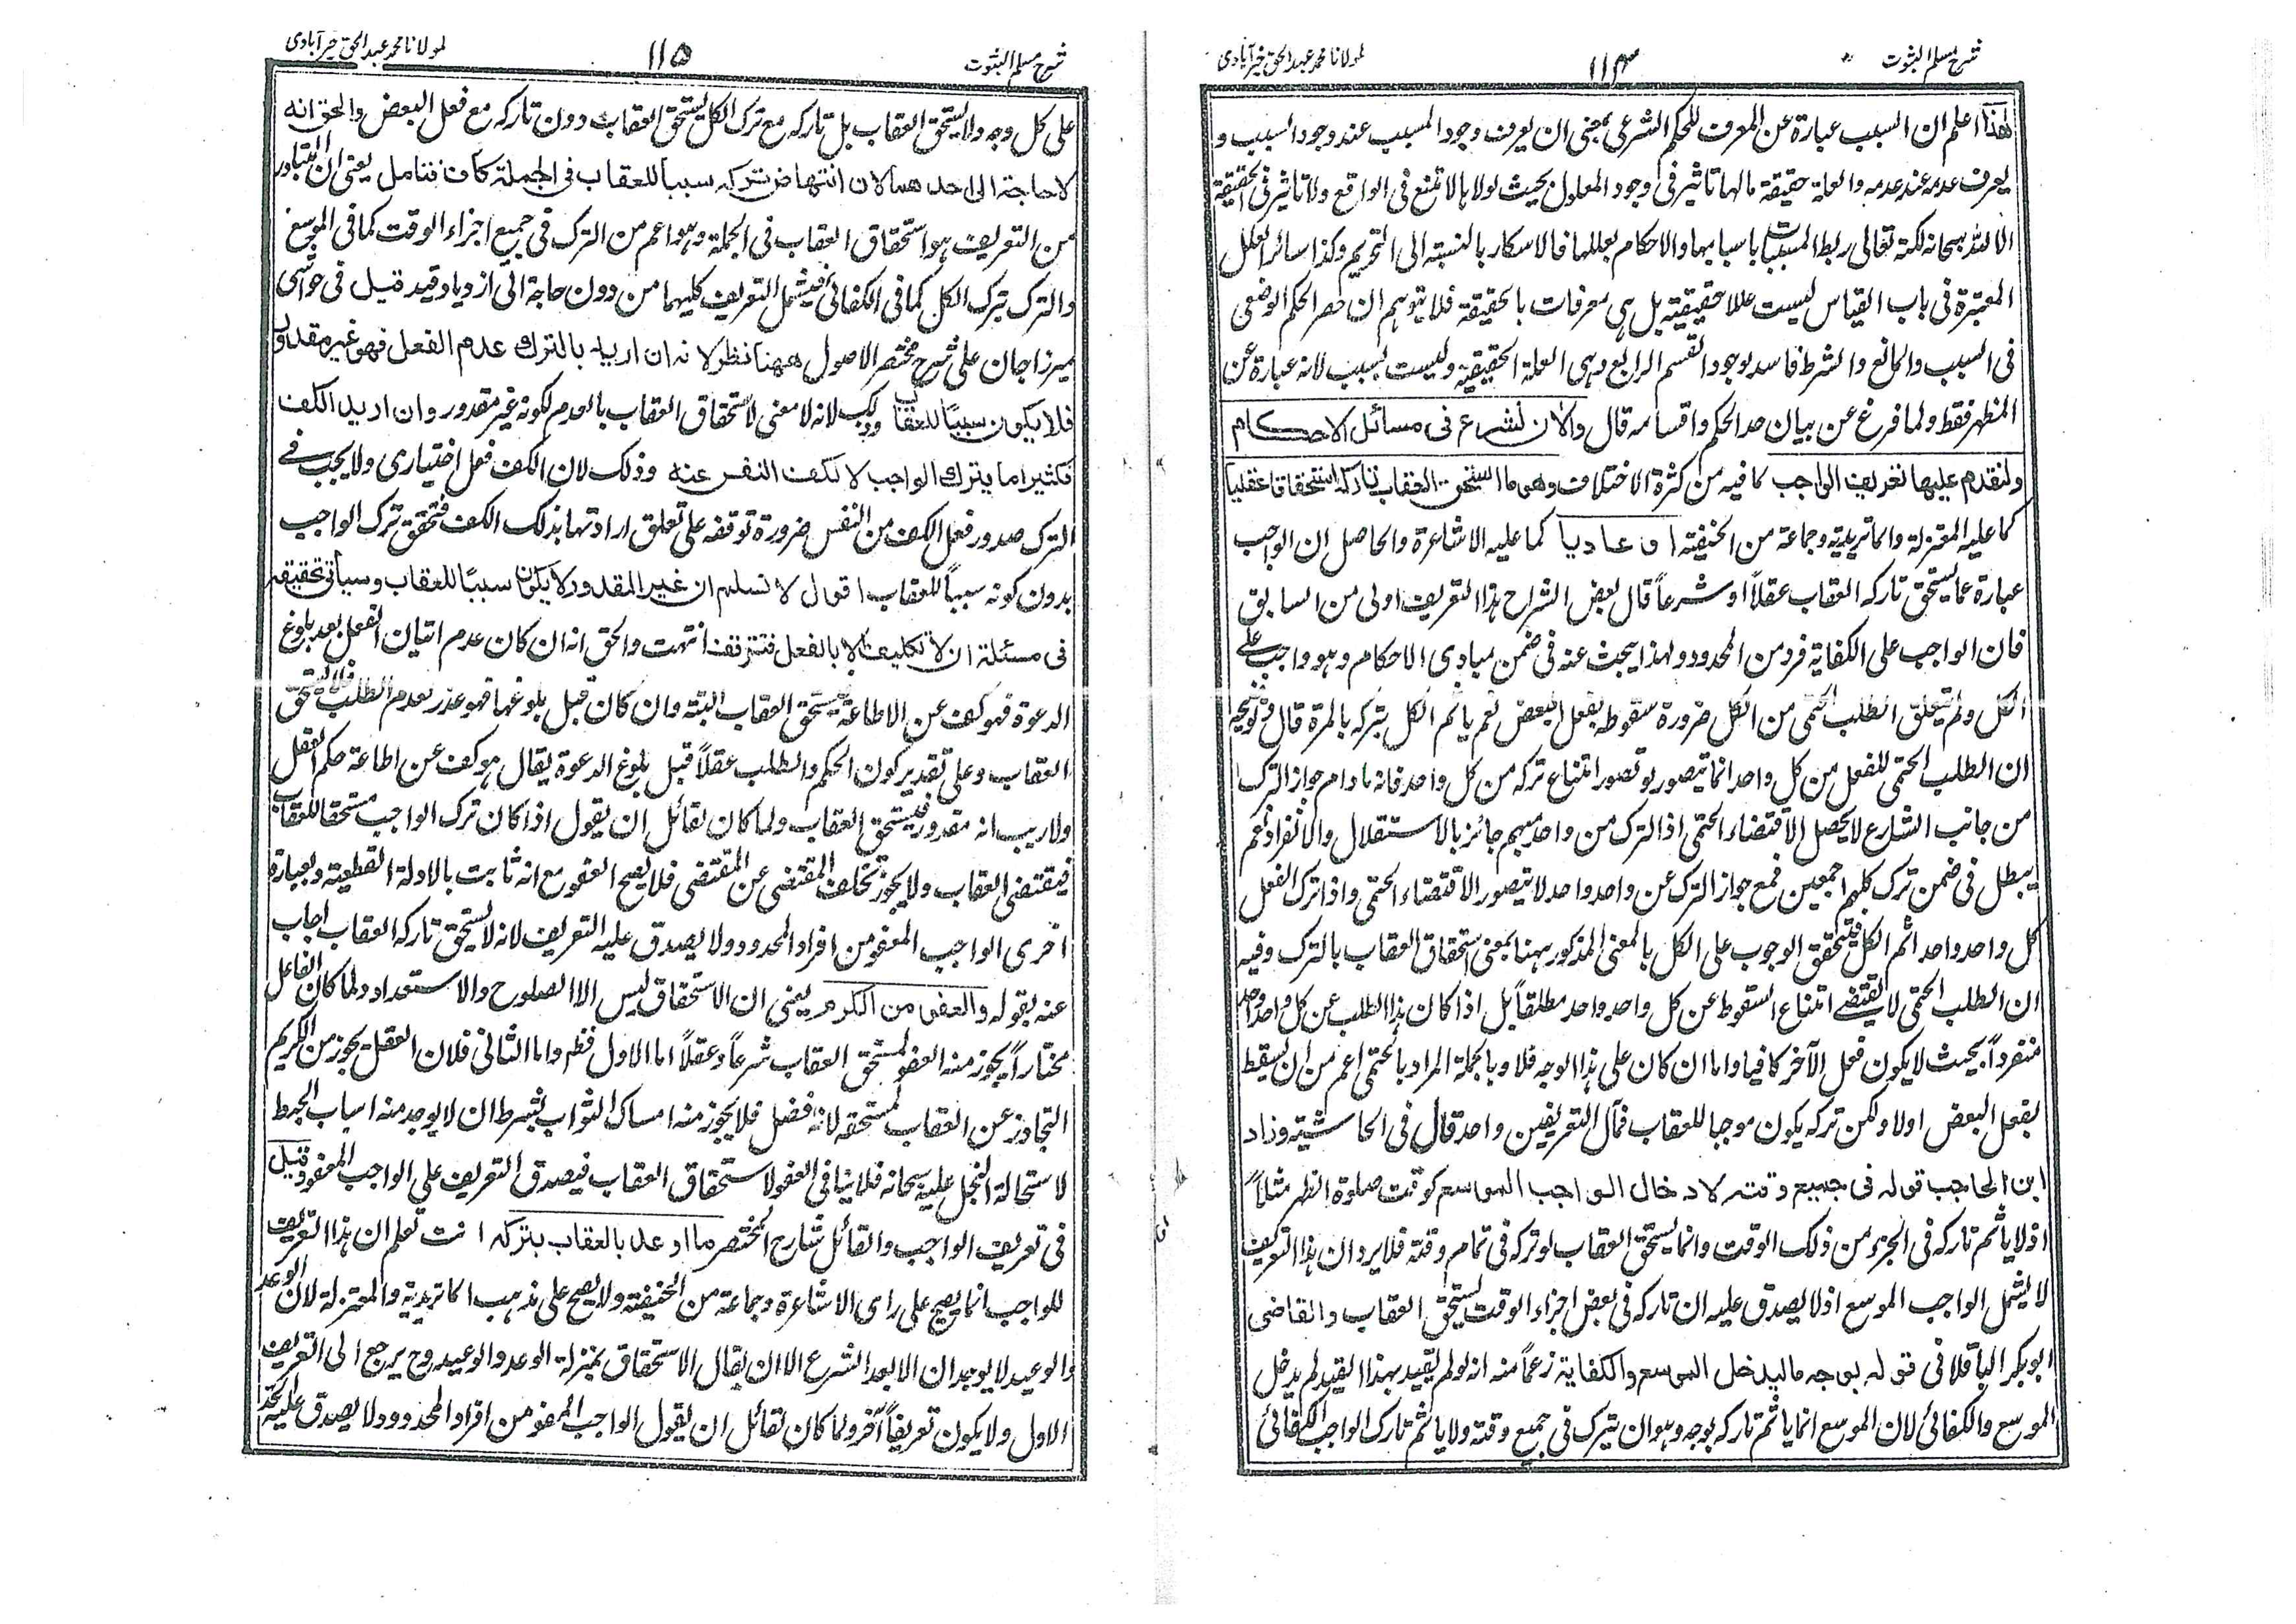 شرح مسلم الثبوت
۱۱۴
لمولانا محمد عبد الحق خیرآبادی
هذا اعلم ان السبب عبارة عن المعرف للحكم الشرعی بمعنی ان یعرف وجود المسبب عند وجود السبب و
یعرف عدمه عند عدمه والعلة حقیقة مالها تاثیر فی وجود المعلول بحیث لولاها لامتنع فی الواقع ولا تاثیر فی الحقیقة
الا لله سبحانه لكنه تعالی ربط المسببات باسبابها والاحكام بعللها فالاسكار بالنسبة الی التحریم وكذا سائر العلل
المعتبرة فی باب القیاس لیست عللا حقیقیة بل هی معرفات بالحقیقة فلا یتوهم ان حصر الحكم الوضعی
فی السبب والمانع والشرط فاسد لوجود القسم الرابع وهی العلة الحقیقیة ولیست بسبب لانه عبارة عن
المظهر فقط ولما فرغ عن بیان حد الحكم واقسامه قال والان نشرع فی مسائل الاحكام
ولنقدم علیها تعریف الواجب لما فیه من كثرة الاختلاف وهو ما استحق العقاب تاركه استحقاقا عقلیا
كما علیه المعتزلة والماتریدیة وجماعة من الحنفیة او عادیا كما علیه الاشاعرة والحاصل ان الواجب
عبارة عما یستحق تاركه العقاب عقلاً او شرعاً قال بعض الشراح هذا التعریف اولی من السابق
فان الواجب علی الكفایة فرد من المحدود ولهذا یبحث عنه فی ضمن مبادی الاحكام وهو واجب علی
الكل ولم یتعلق الطلب الحتمی من الكل ضرورة سقوطه بفعل البعض نعم یاثم الكل بتركه بالمرة قال وتوضیحه
ان الطلب الحتمی للفعل من كل واحد انما یتصور بو تصور امتناع تركه من كل واحد فانه مادام جواز الترك
من جانب الشارع لا یحصل الاقتضاء الحتمی اذ الترك من واحد مبهم جائز بالاستقلال والانفراد نعم
یبطل فی ضمن ترك كلهم اجمعین فمع جواز الترك عن واحد واحد لا یتصور الاقتضاء الحتمی واذا ترك الفعل
كل واحد واحد اثم الكل فیتحقق الوجوب علی الكل بالمعنی المذكور ههنا بمعنی استحقاق العقاب بالترك وفیه
ان الطلب الحتمی لا یقتضی امتناع السقوط عن كل واحد واحد مطلقاً بل اذا كان هذا الطلب عن كل واحد واحد
منفرداً بحیث لا یكون فعل الآخر كافیا واما ان كان علی هذا الوجه فلا وبالجملة المراد بالحتمی اعم من ان یسقط
بفعل البعض اولا ولكن تركه یكون موجبا للعقاب فمآل التعریفین واحد قال فی الحاشیة وزاد
ابن الحاجب قوله فی جمیع وقته لادخال الواجب الموسع كوقت صلوة الظهر مثلاً
اذ لا یاثم تاركه فی الجزء من ذلك الوقت وانما یستحق العقاب لو تركه فی تمام وقته فلا یرد ان هذا التعریف
لا یشمل الواجب الموسع اذ لا یصدق علیه ان تاركه فی بعض اجزاء الوقت یستحق العقاب والقاضی
ابو بكر الباقلانی قوله بوجه ما لیدخل الموسع والكفایة زعماً منه انه لو لم یقید بهذا القید لم یدخل
الموسع والكفائی لان الموسع انما یاثم تاركه بوجه وهو ان یترك فی جمیع وقته ولا یاثم تارك الواجب الكفائی
شرح مسلم الثبوت
۱۱۵
لمولانا محمد عبد الحق خیرآبادی
علی كل وجه ولا یستحق العقاب بل تاركه مع ترك الكل یستحق العقاب دون تاركه مع فعل البعض والحق انه
لا حاجة الی احدهما لان انتهاض تركه سببا للعقاب فی الجملة كاف فتامل یعنی ان المتبادر
من التعریف هو استحقاق العقاب فی الجملة وهو اعم من الترك فی جمیع اجزاء الوقت كما فی الموسع
والترك بترك الكل كما فی الكفائی فیشمل التعریف كلیهما من دون حاجة الی ازدیاد قید قیل فی حواشی
میرزا جان علی شرح مختصر الاصول ههنا نظر لانه ان ارید بالترك عدم الفعل فهو غیر مقدور
فلا یكون سببا للعقاب لانه لا معنی لاستحقاق العقاب بالعدم لكونه غیر مقدور وان ارید الكف
فكثیرا ما یترك الواجب لا لكف النفس عنه وذلك لان الكف فعل اختیاری ولا یجب فی
الترك صدور فعل الكف من النفس ضرورة توقفه علی تعلق ارادتها بذلك الكف فتحقق ترك الواجب
بدون كونه سبباً للعقاب اقول لا نسلم ان غیر المقدور لا یكون سببا للعقاب وسیأتی تحقیقه
فی مسئلة ان لا تكلیف الا بالفعل فتترقف انتهت والحق انه ان كان عدم اتیان الفعل بعد بلوغ
الدعوة فهو كف عن الاطاعة یستحق العقاب البتة وان كان قبل بلوغها فهو عذر لعدم الطلب فلا یستحق
العقاب وعلی تقدیر كون الحكم والطلب عقلاً قبل بلوغ الدعوة یقال هو كف عن اطاعة حكم العقل
ولا ریب انه مقدور فیستحق العقاب ولما كان لقائل ان یقول اذا كان ترك الواجب مستحقا للعقاب
فیقتضی العقاب ولا یجوز تخلف المقتضی عن المقتضی فلا یصح العفو مع انه ثابت بالادلة القطعیة وبعبارة
اخری الواجب المعفو من افراد المحدود ولا یصدق علیه التعریف لانه لا یستحق تاركه العقاب اجاب
عنه بقوله والعفو من الكرم یعنی ان الاستحقاق لیس الا الصلوح والاستعداد ولما كان الفاعل
مختاراً یجوز منه العفو لمستحق العقاب شرعاً وعقلاً اما الاول فظ واما الثانی فلان العقل یجوز من الكریم
التجاوز عن العقاب لمستحقه لانه فضل فلا یجوز منه امساك الثواب بشرط ان لا یوجد منه اسباب الحبط
لاستحالة البخل علیه سبحانه فلا ینافی العفو لاستحقاق العقاب فیصدق التعریف علی الواجب المعفو وقیل
فی تعریف الواجب والقائل شارح المختصر ما اوعد بالعقاب بتركه انت تعلم ان هذا التعریف
للواجب انما یصح علی رای الاشاعرة وجماعة من الحنفیة ولا یصح علی مذهب الماتریدیة والمعتزلة لان الوعد
والوعید لا یوجدان الا بعد الشرع الا ان یقال الاستحقاق بمنزلة الوعد والوعید وح یرجع الی التعریف
الاول ولا یكون تعریفاً آخر ولما كان لقائل ان یقول الواجب المعفو من افراد المحدود ولا یصدق علیه الحد